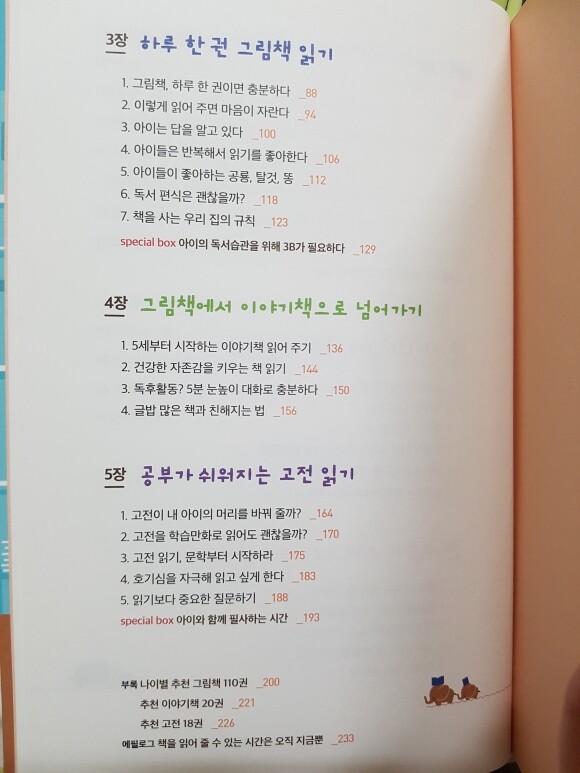 3장 하루 한 권 그림책 읽기
1. 그림책, 하루 한 권이면 충분하다 _88
2. 이렇게 읽어 주면 마음이 자란다 _94
3. 아이는 답을 알고 있다 _100
4. 아이들은 반복해서 읽기를 좋아한다 _106
5. 아이들이 좋아하는 공룡, 탈것, 똥 _112
6. 독서 편식은 괜찮을까? _118
7. 책을 사는 우리 집의 규칙 _123
special box 아이의 독서습관을 위해 3B가 필요하다 _129
4장 그림책에서 이야기책으로 넘어가기
1. 5세부터 시작하는 이야기책 읽어 주기 _136
2. 건강한 자존감을 키우는 책 읽기 _144
3. 독후활동? 5분 눈높이 대화로 충분하다 _150
4. 글밥 많은 책과 친해지는 법 _156
5장 공부가 쉬워지는 고전 읽기
1. 고전이 내 아이의 머리를 바꿔 줄까? _164
2. 고전을 학습만화로 읽어도 괜찮을까? _170
3. 고전 읽기, 문학부터 시작하라 _175
4. 호기심을 자극해 읽고 싶게 한다 _183
5. 읽기보다 중요한 질문하기 _188
special box 아이와 함께 필사하는 시간 _193
부록 나이별 추천 그림책 110권 _200
추천 이야기책 20권 _221
추천 고전 18권 _226
에필로그 책을 읽어 줄 수 있는 시간은 오직 지금뿐 _233